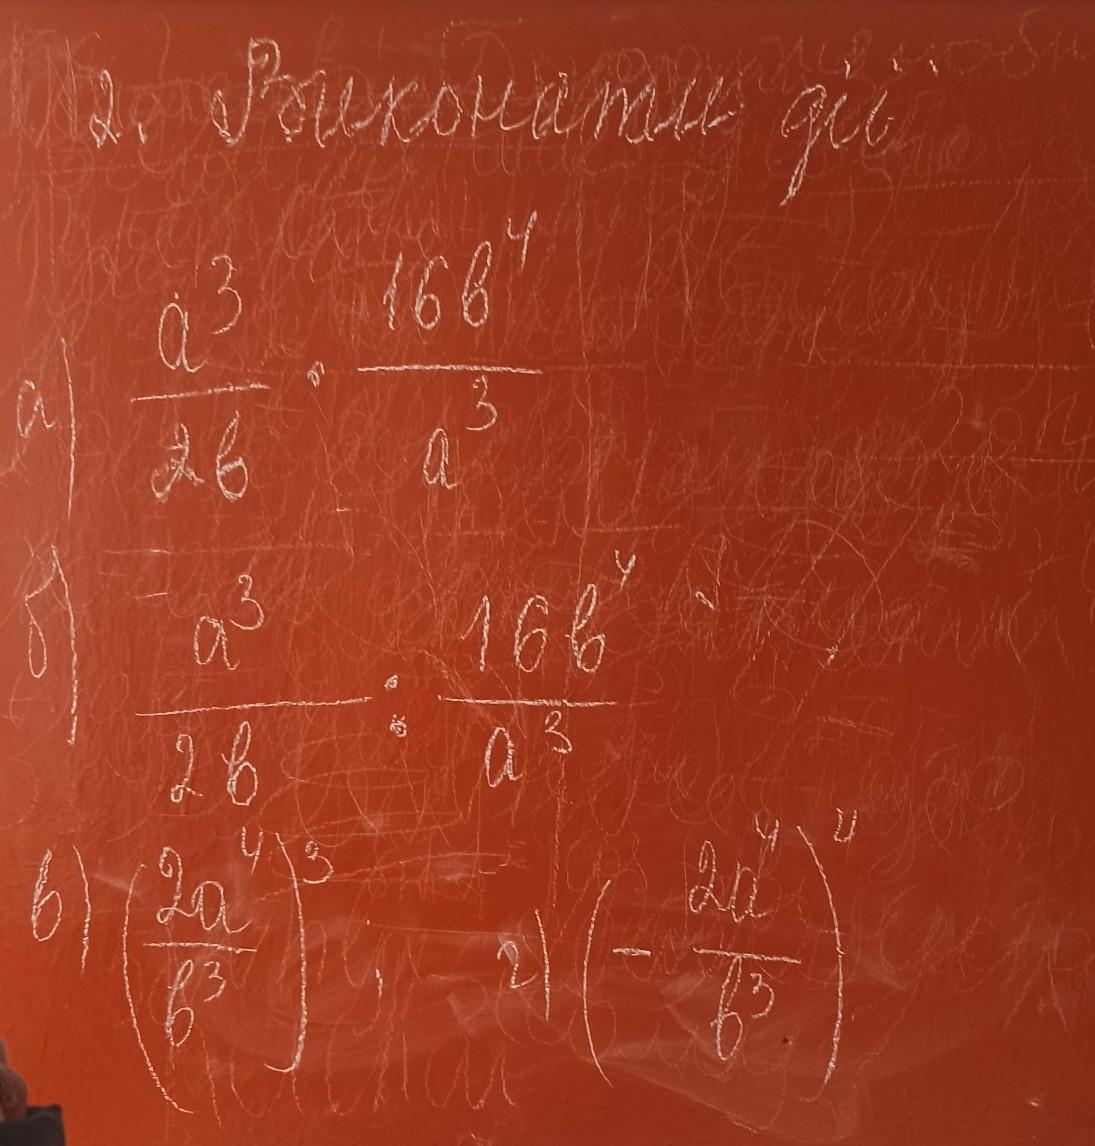 2. Виконати дії
а) a³/2b · 16b⁴/a³
б) a³/2b : 16b⁴/a³
в) (2a⁴/b³)³, г) (- 2a⁴/b³)⁴